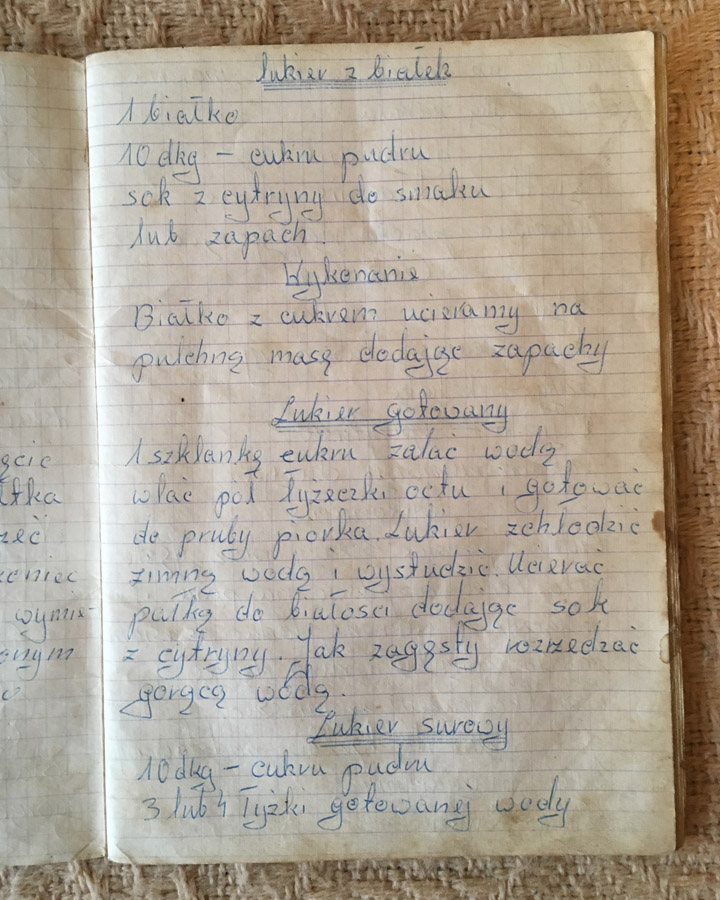 lukier z białek
1 białko
10 dkg – cukru pudru
sok z cytryny do smaku
lub zapach.
Wykonanie
Białko z cukrem ucieramy na
pulchną masę dodając zapachy
Lukier gotowany
1 szklankę cukru zalać wodą
wlać pół łyżeczki octu i gotować
do pruby piorka. Lukier schłodzić
zimną wodą i wystudzić. Ucierać
pałką do białości dodając sok
z cytryny. Jak zagęsty rozrzedzać
gorącą wodą.
Lukier surowy
10 dkg – cukru pudru
3 lub 4 łyżki gotowanej wody